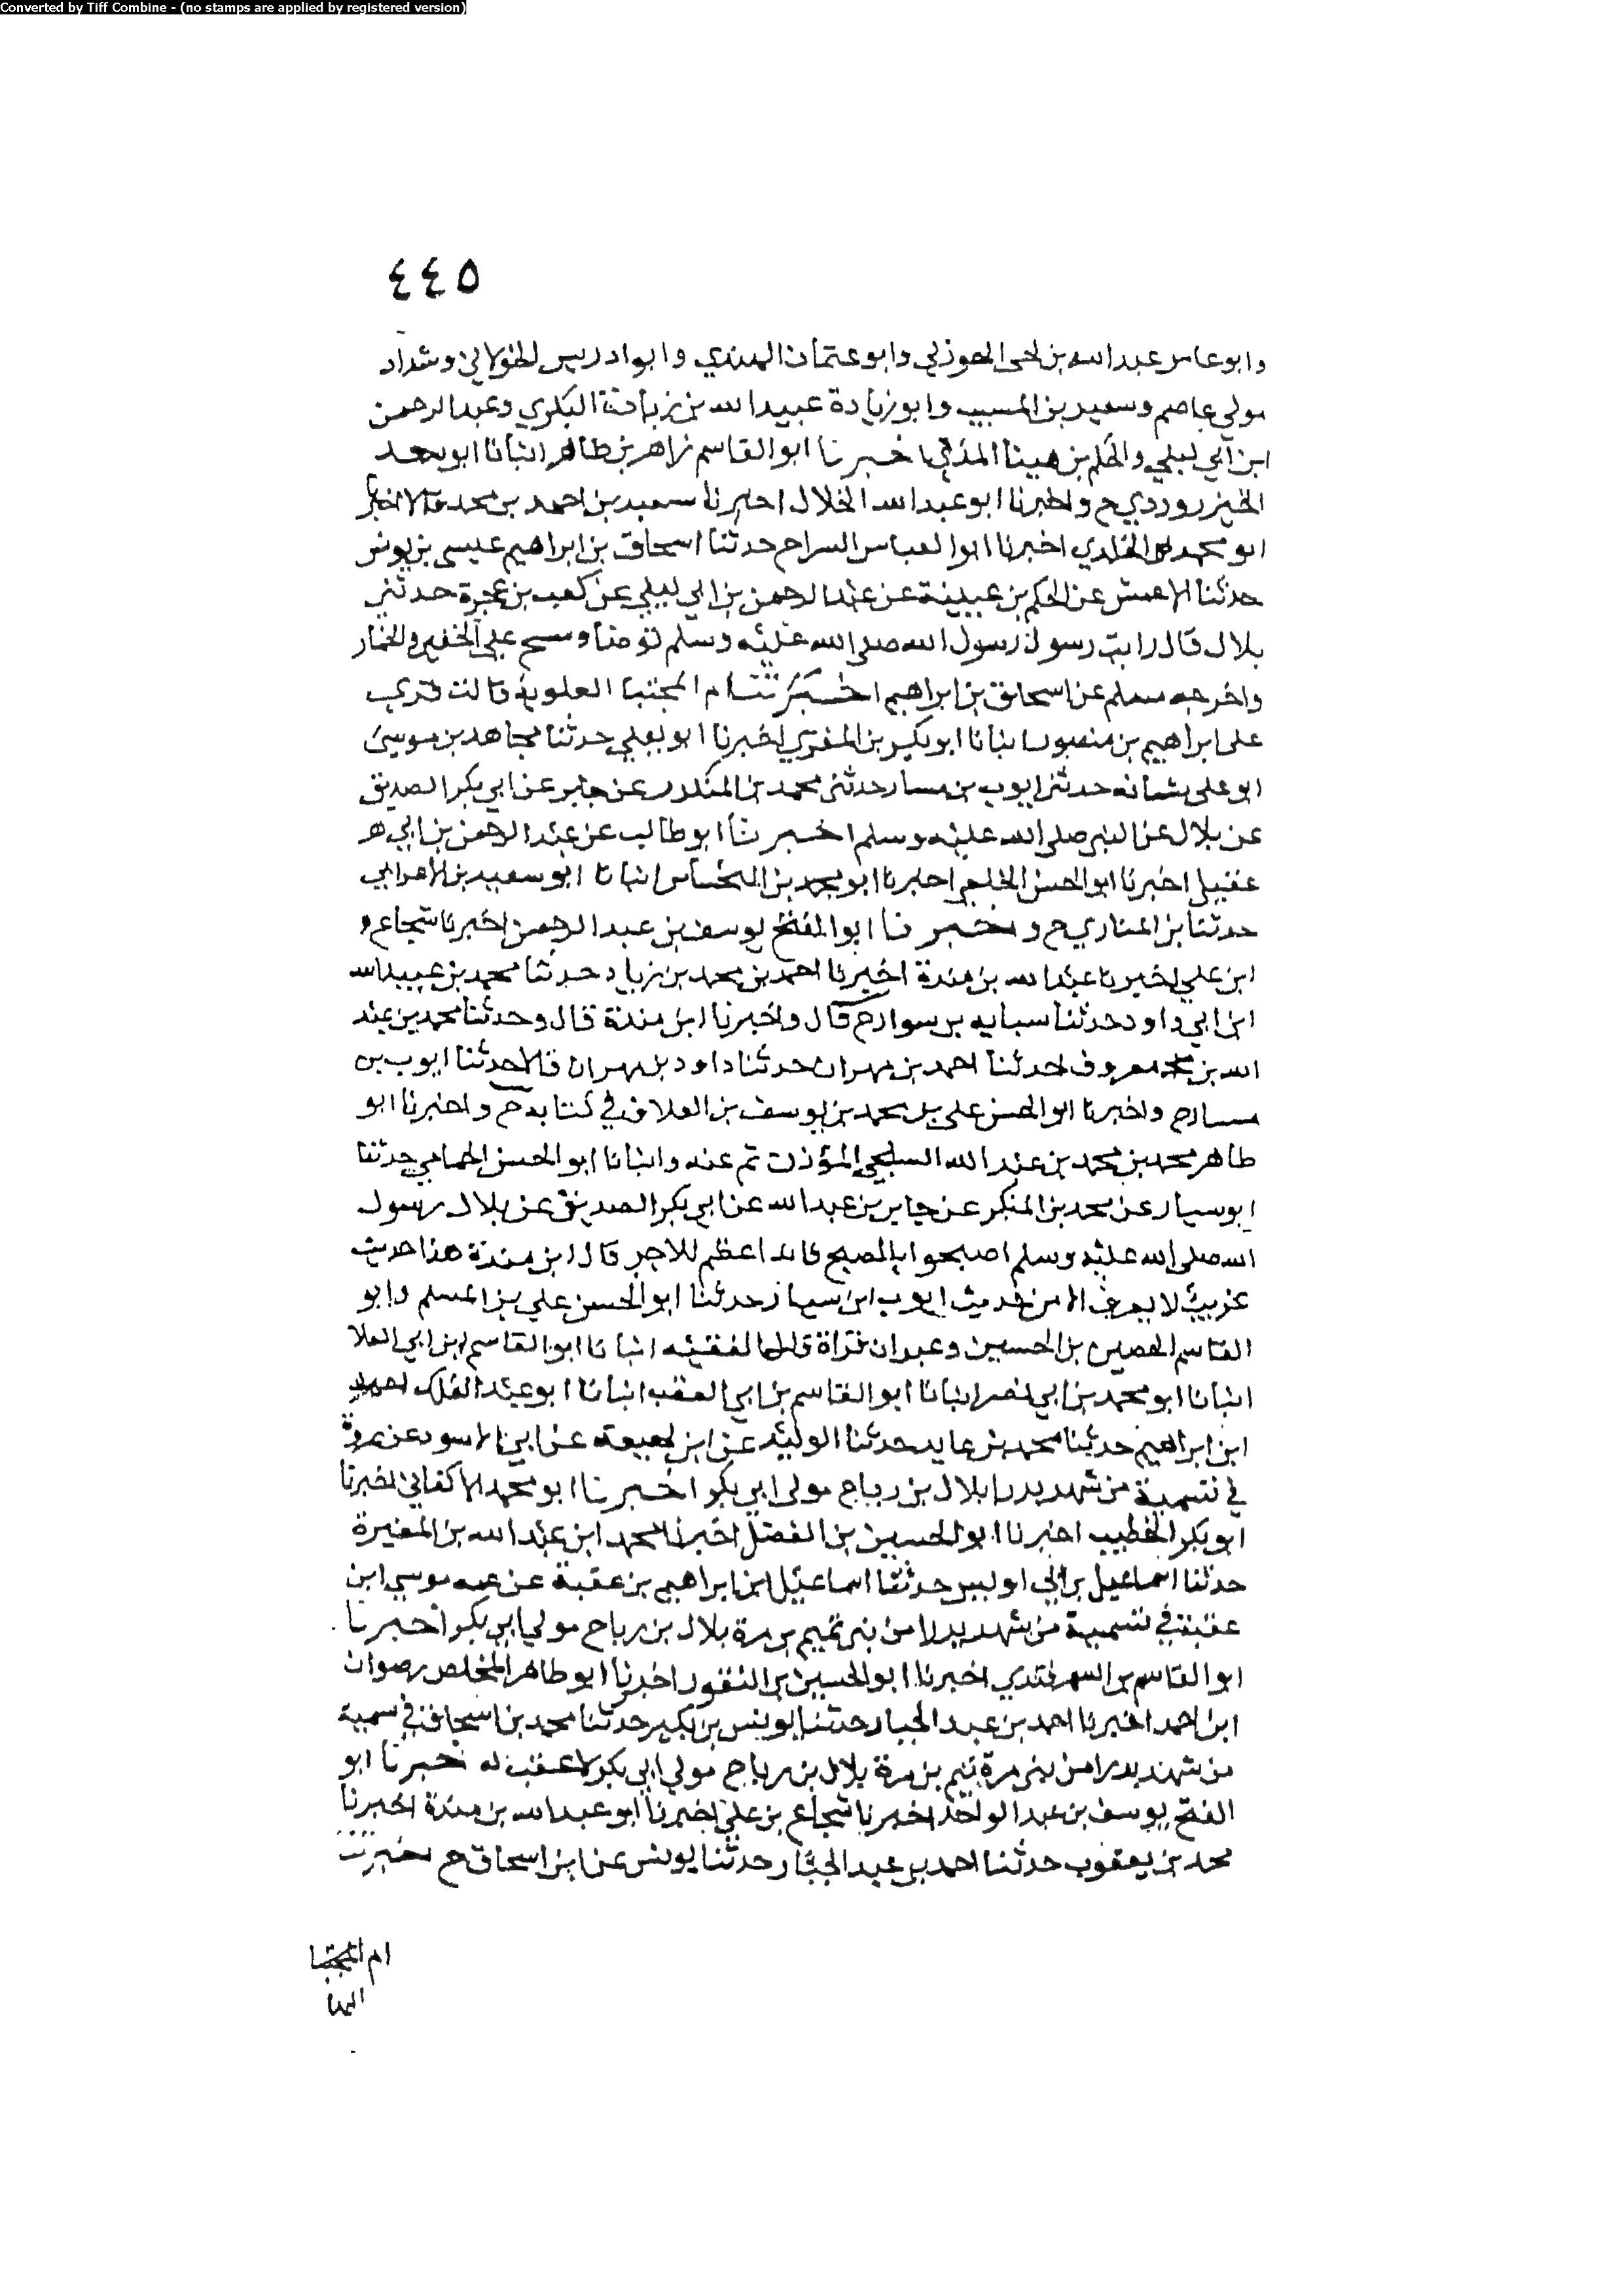 Converted by Tiff Combine - (no stamps are applied by registered version)
٤٤٥
وابو عامر عبدالله بن لحى الهوزلي وابو عتمان الهندي وابوادريس الخولاني وشداد
مولي عاصم وسعيد بن المسيب وابوزيادة عبيدالله بن زيادة البكري وعبدالرحمن
ابن ابي ليلي والحكم بن مينا المدني اخبرنا ابوالقاسم زاهر بن طاهر انبانا ابوسعد
الخنزرودي ح واخبرنا ابو عبدالله الخلال اخبرنا سعيد بن احمد بن محمد قالا اخبرنا
ابو محمد المخلدي اخبرنا ابوالعباس السراح حدثنا اسحاق بن ابراهيم عيسى بن يونس
حدثنا الاعمش عن الحكم بن عيينة عن عبدالرحمن بن ابي ليلي عن كعب بن عجرة حدثني
بلال قال رايت رسول رسول الله صلى الله عليه وسلم توضا ومسح على الخفين والخمار
واخرجه مسلم عن اسحاق بن ابراهيم اخبرتنا ام المجتبا العلوية قالت قري
على ابراهيم بن منصور انبانا ابوبكر بن المقري اخبرنا ابو يعلي حدثنا مجاهد بن موسى
ابو على شبانه حدثنى ايوب بن سيار حدثنى محمد بن المنكدر عن جابر عن ابي بكر الصديق
عن بلال عن النبى صلى الله عليه وسلم اخبرنا ابوطالب عن عبدالرحمن بن ابي
عقيل اخبرنا ابوالحسن الخلعي اخبرنا ابومحمد بن النحاس انبانا ابوسعيد بن الاعرابي
حدثنا بن المناري ح و خبرنا ابوالفتح يوسف بن عبدالرحمن اخبرنا شجاع
ابن علي اخبرنا عبدالله بن مندة اخبرنا احمد بن محمد بن زياد حدثنا محمد بن عبيدالله
ابن ابي داود حدثنا سبايه بن سوار ح قال واخبرنا ابن مندة قال وحدثنا محمد بن عبد
الله بن معروف حدثنا احمد بن مهران حدثنا داود بن مهران قالا حدثنا ايوب بن
سيار ح واخبرنا ابوالحسن على بن محمد بن يوسف بن العلاف في كتابه ح واخبرنا ابو
طاهر محمد بن محمد بن عبدالله السبلحي المؤذن تم عنه وانبانا ابوالحسن الحمامي حدثنا
ابوسيار عن محمد بن المنكر عن جابر بن عبدالله عن ابي بكر الصديق عن بلال رسول
الله صلى الله عليه وسلم اصبحوا بالصبح فانه اعظم للاجر قال ابن مندة هذا حديث
غريب لا يعرف الا من حديث ايوب ابن سيار حدثنا ابوالحسن علي بن المسلم وابو
القاسم الحصين بن الحسين وعبدان قراة قالا الفقيه انبانا ابوالقاسم ابن ابي العلا
انبانا ابو محمد بن ابي نصر انبانا ابوالقاسم بن ابي العقب انبانا ابو عبد الملك احمد
ابن ابراهيم حدثنا محمد بن عايد حدثنا الوليد عن ابن لهيعه عن ابي الاسود عن عروة
في تسمية من شهد بدرا بلال بن رباح مولى ابي بكر اخبرنا ابو محمد الاكفاني اخبرنا
ابو بكر الخطيب اخبرنا ابوالحسين بن الفضل اخبرنا محمد ابن عبدالله بن المغيرة
حدثنا اسماعيل بن ابي اويس حدثنا اسماعيل ابن ابراهيم بن عقبة عن عمه موسي ابن
عقبة في تسمية من شهد بدرا من بنى تميم بن مرة بلال بن رباح مولي ابي بكر اخبرنا
ابوالقاسم بن السمرقندي اخبرنا ابوالحسين بن النقور اخبرنا ابو طاهر المخلص رضوان
ابن احمد اخبرنا احمد بن عبد الجبار حدثنا يونس بن بكير حدثنا محمد بن اسحاق في سمية
من شهد بدرا من بنى مرة تيم بن مرة بلال بن رباح مولي ابي بكر لا عقب له خبرنا ابو
الفتح يوسف بن عبدالواحد اخبرنا شجاع بن على اخبرنا ابو عبدالله بن مندة اخبرنا
محمد بن يعقوب حدثنا احمد بن عبدالجبار حدثنا يونس عن ابن اسحاق ح خبرتنا
ام المجتبا